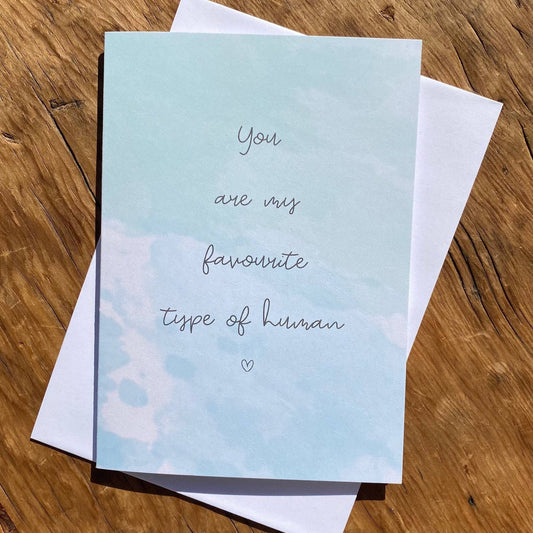 You
are my
favourite
type of human
♡